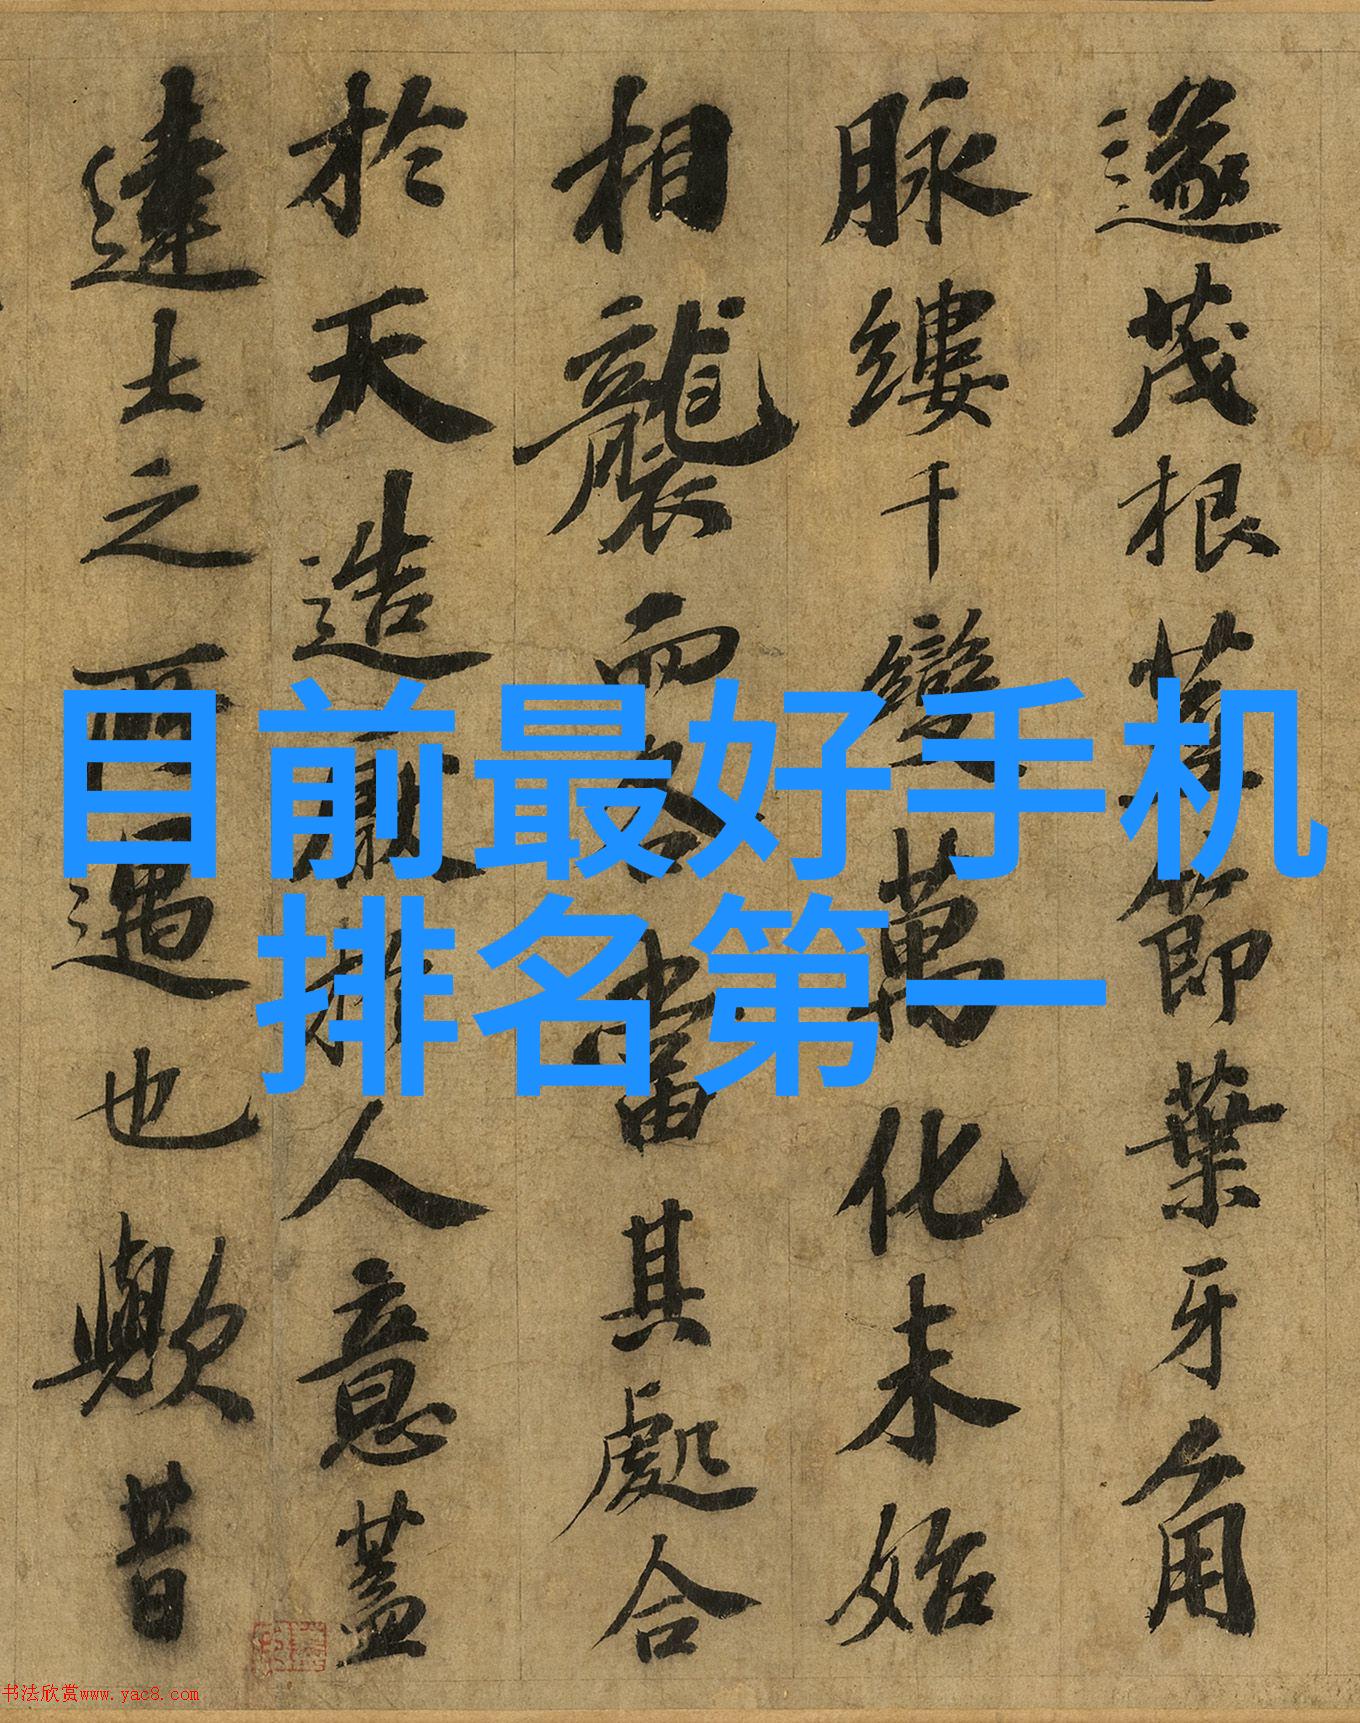 遂茂根莖節葉牙角
脉縷千變萬化未始
相襲而各當其處合
於天造厭於人意蓋
達士之所遇也歟昔
目前最好手机
排名第一
书法欣赏www.yac8.com